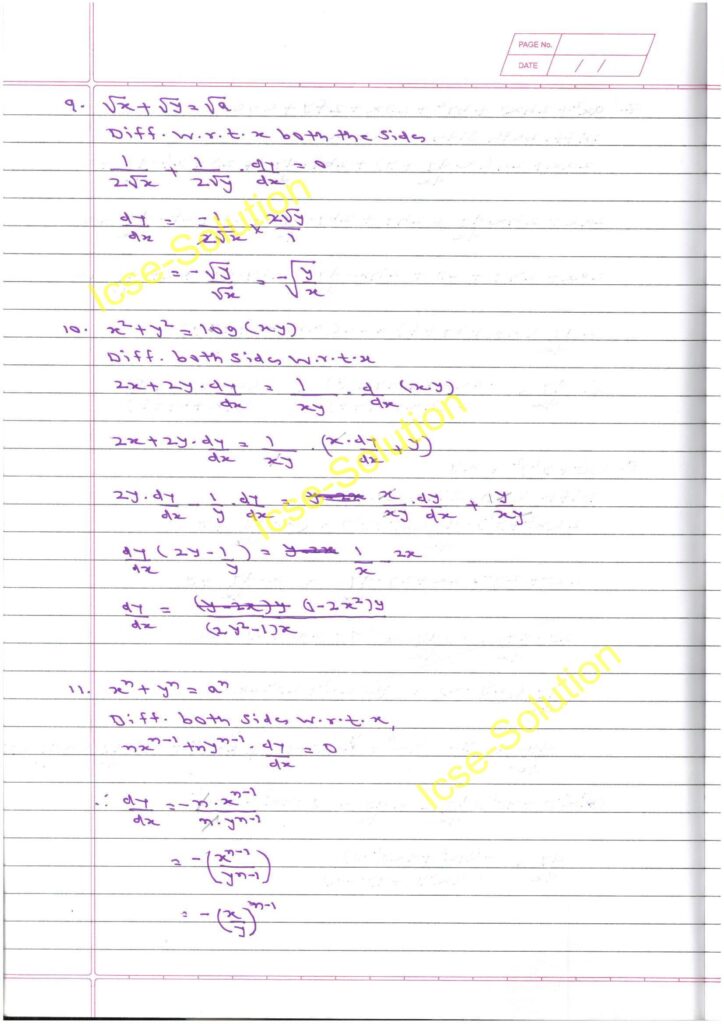 PAGE No.
DATE / /
9. √x + √y = √a
Diff. w.r.t. x both the sides
1/2√x + 1/2√y . dy/dx = 0
dy/dx = -1/2√x × 2√y/1
= -√y/√x = -√(y/x)
10. x² + y² = log (xy)
Diff. both sides w.r.t. x
2x + 2y . dy/dx = 1/xy . d/dx (xy)
2x + 2y . dy/dx = 1/xy . (x . dy/dx + y)
2y . dy/dx - 1/y . dy/dx = x/xy . dy/dx + y/xy
dy/dx (2y - 1/y) = 1/x - 2x
dy/dx = (1 - 2x²)y/(2y² - 1)x
11. xⁿ + yⁿ = aⁿ
Diff. both sides w.r.t. x,
nxⁿ⁻¹ + nyⁿ⁻¹ . dy/dx = 0
∴ dy/dx = -n . xⁿ⁻¹/n . yⁿ⁻¹
= -(xⁿ⁻¹/yⁿ⁻¹)
= -(x/y)ⁿ⁻¹
Icse-Solution
Icse-Solution
Icse-Solution